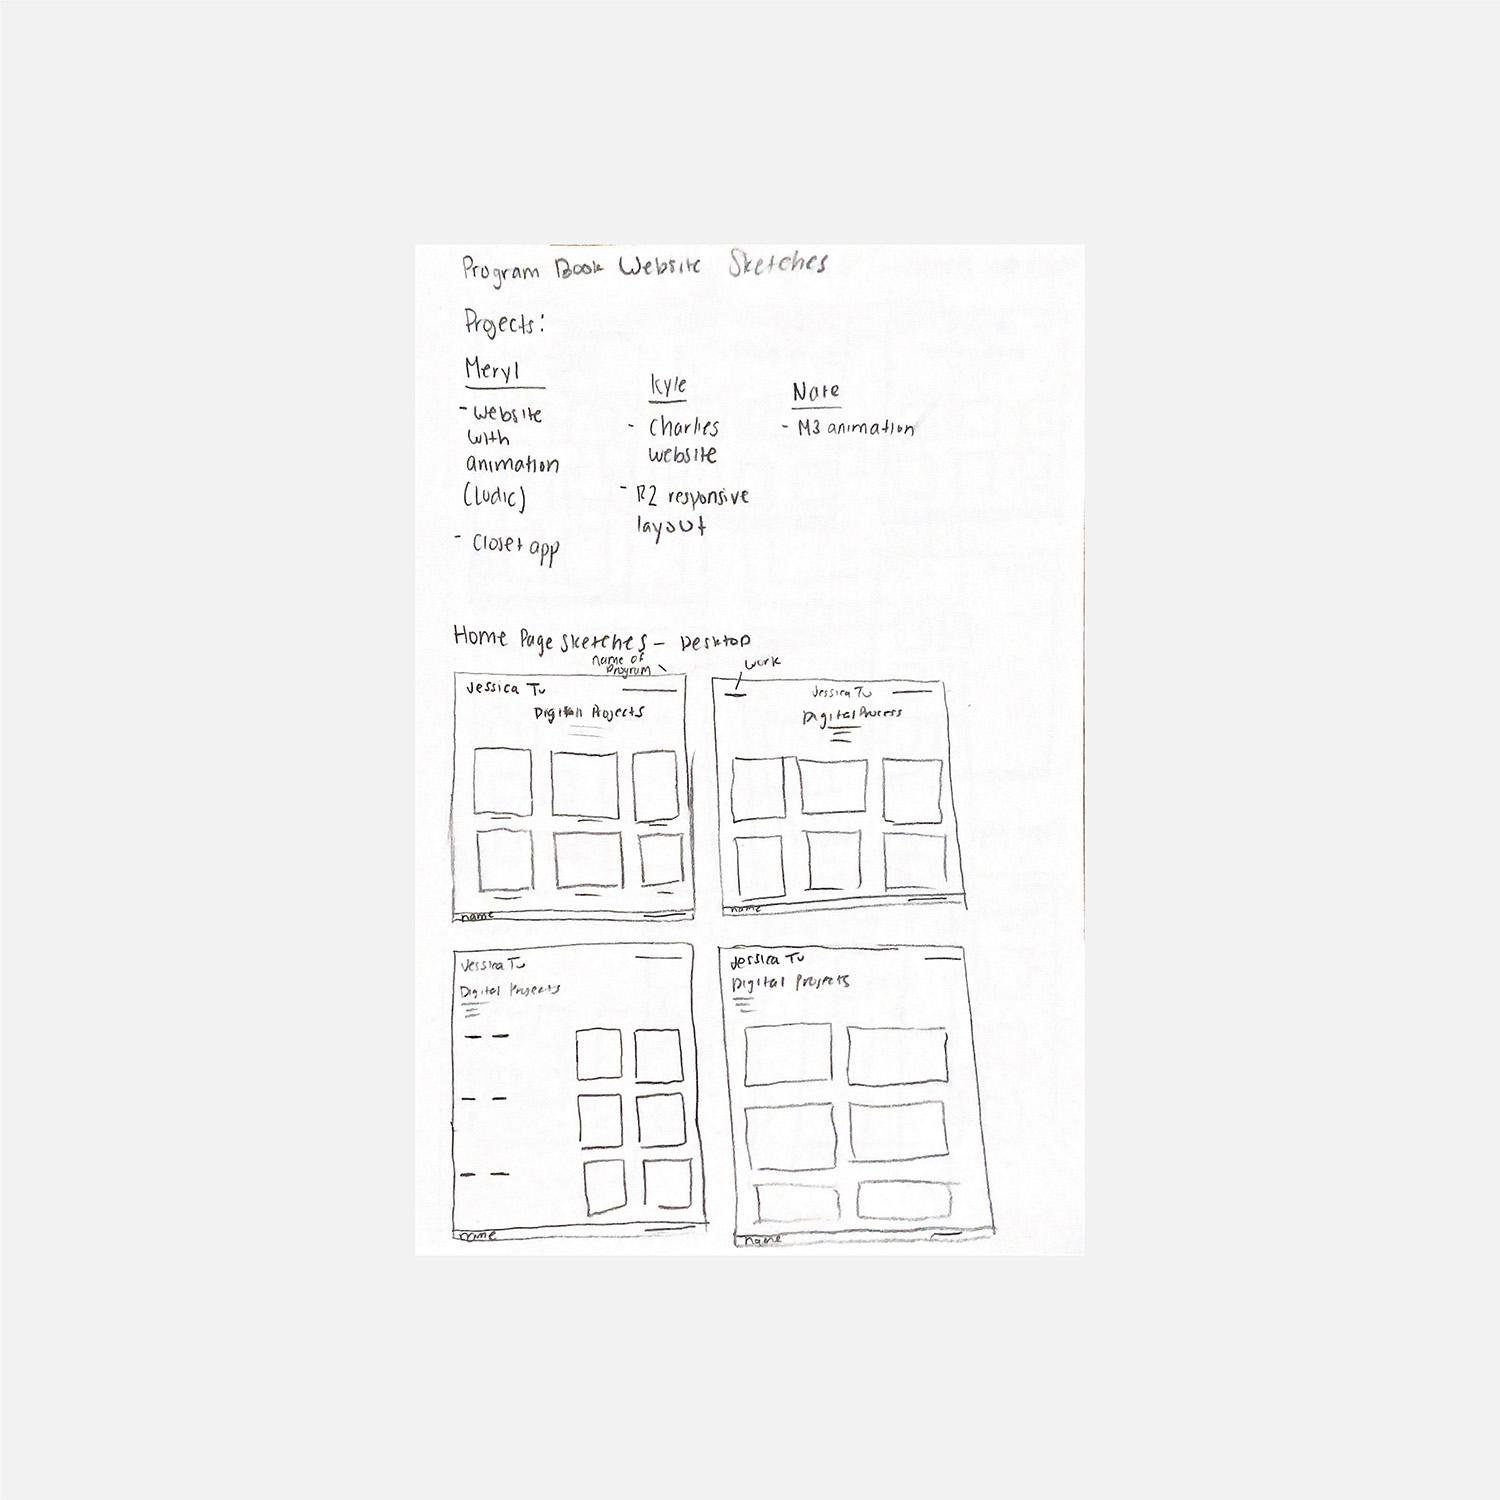 Program Book Website Sketches
Projects:
Meryl
- Website
with
animation
(Ludic)
- Closet app
Kyle
- Charlies
website
- R2 responsive
layout
Nate
- M3 animation
Home Page Sketches - Desktop
name of
Program
work
Jessica Tu
Digital Projects
name
Jessica Tu
Digital Process
name
Jessica Tu
Digital Projects
name
Jessica Tu
Digital Projects
name